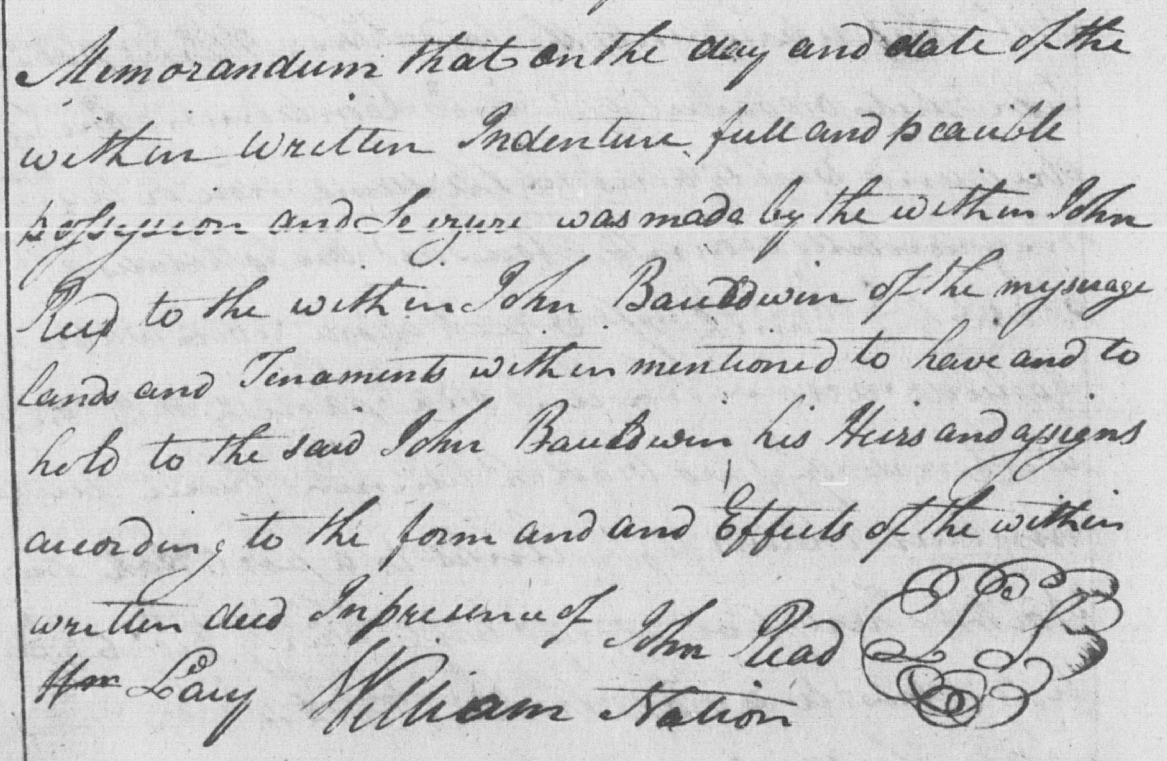 Memorandum that on the day and date of the
within written Indenture full and peacible
possession and Seizure was made by the within John
Reed to the within John Bauldwin of the mesuage
lands and Tenaments within mentioned to have and to
hold to the said John Bauldwin his Heirs and assigns
according to the form and and Effects of the within
written deed In presence of John Read
Wm Lacy William Nation